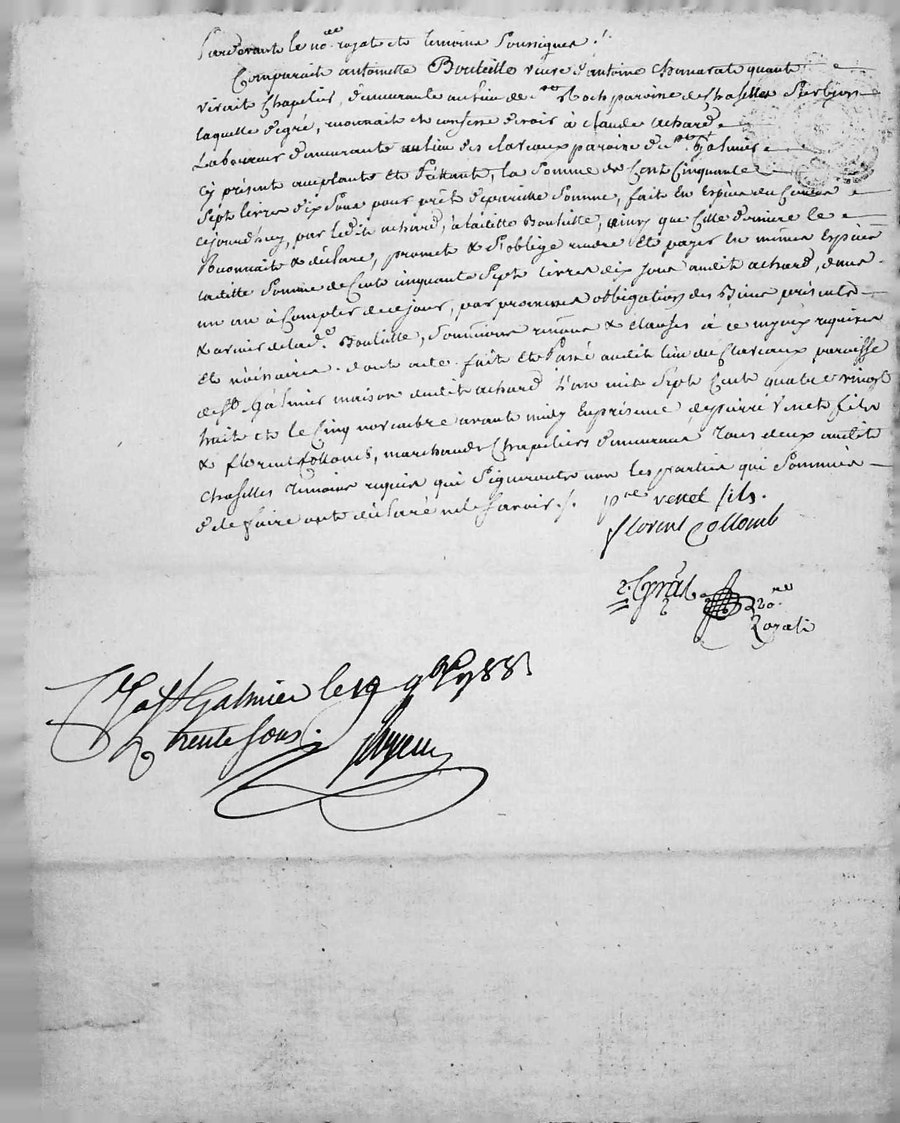 Pardevant le no.re royal et temoins Soussignes./.
Comparait antoinette Bouteille veuve d'antoine quant
vivait Chapelier, demeurante au lieu de Roch paroisse de Chaselles Sur Lyon
laquelle de gré, reconnait et confesse devoir à Claude achard
Laboureur demeurant au lieu des clavaux paroisse de St Galmier
Cy présent acceptant et Stipulant, la Somme de Cent Cinquante
Sept livres dix Sous pour prêt de pareille Somme, fait en Espèces du Cours
cejourd'huy, par ledit achard, à laditte Bouteille, ainsy que Cette dernière le
Reconnait & déclare, promet & S'oblige rendre et payer en mêmes Espèces
laditte Somme de Cent cinquante Sept livres dix Sous audit achard, dans
un an à Compter de ce jour, par promesses obligation des Biens présents
& avenir de lad.e Bouteille, Soumissions renons & clauses à ce requises
et nécessaires. dont acte. fait et Passé audit lieu des Clavaux paroisse
de St Galmier maison dudit achard L'an mil Sept Cent quatre vingt
huit et le Cinq novembre avant midy En présence de pierre Venet fils
& florent Collomb, marchands Chapeliers demeurant Tous deux audit
Chaselles Temoins requis qui Signeront non les parties qui Sommées
de le faire ont déclaré ne le Savoir ./.
p.re venet fils.
florent Collomb
no.re
Royal
C.le a St Galmier le 19 9bre 1788
R trente sous.